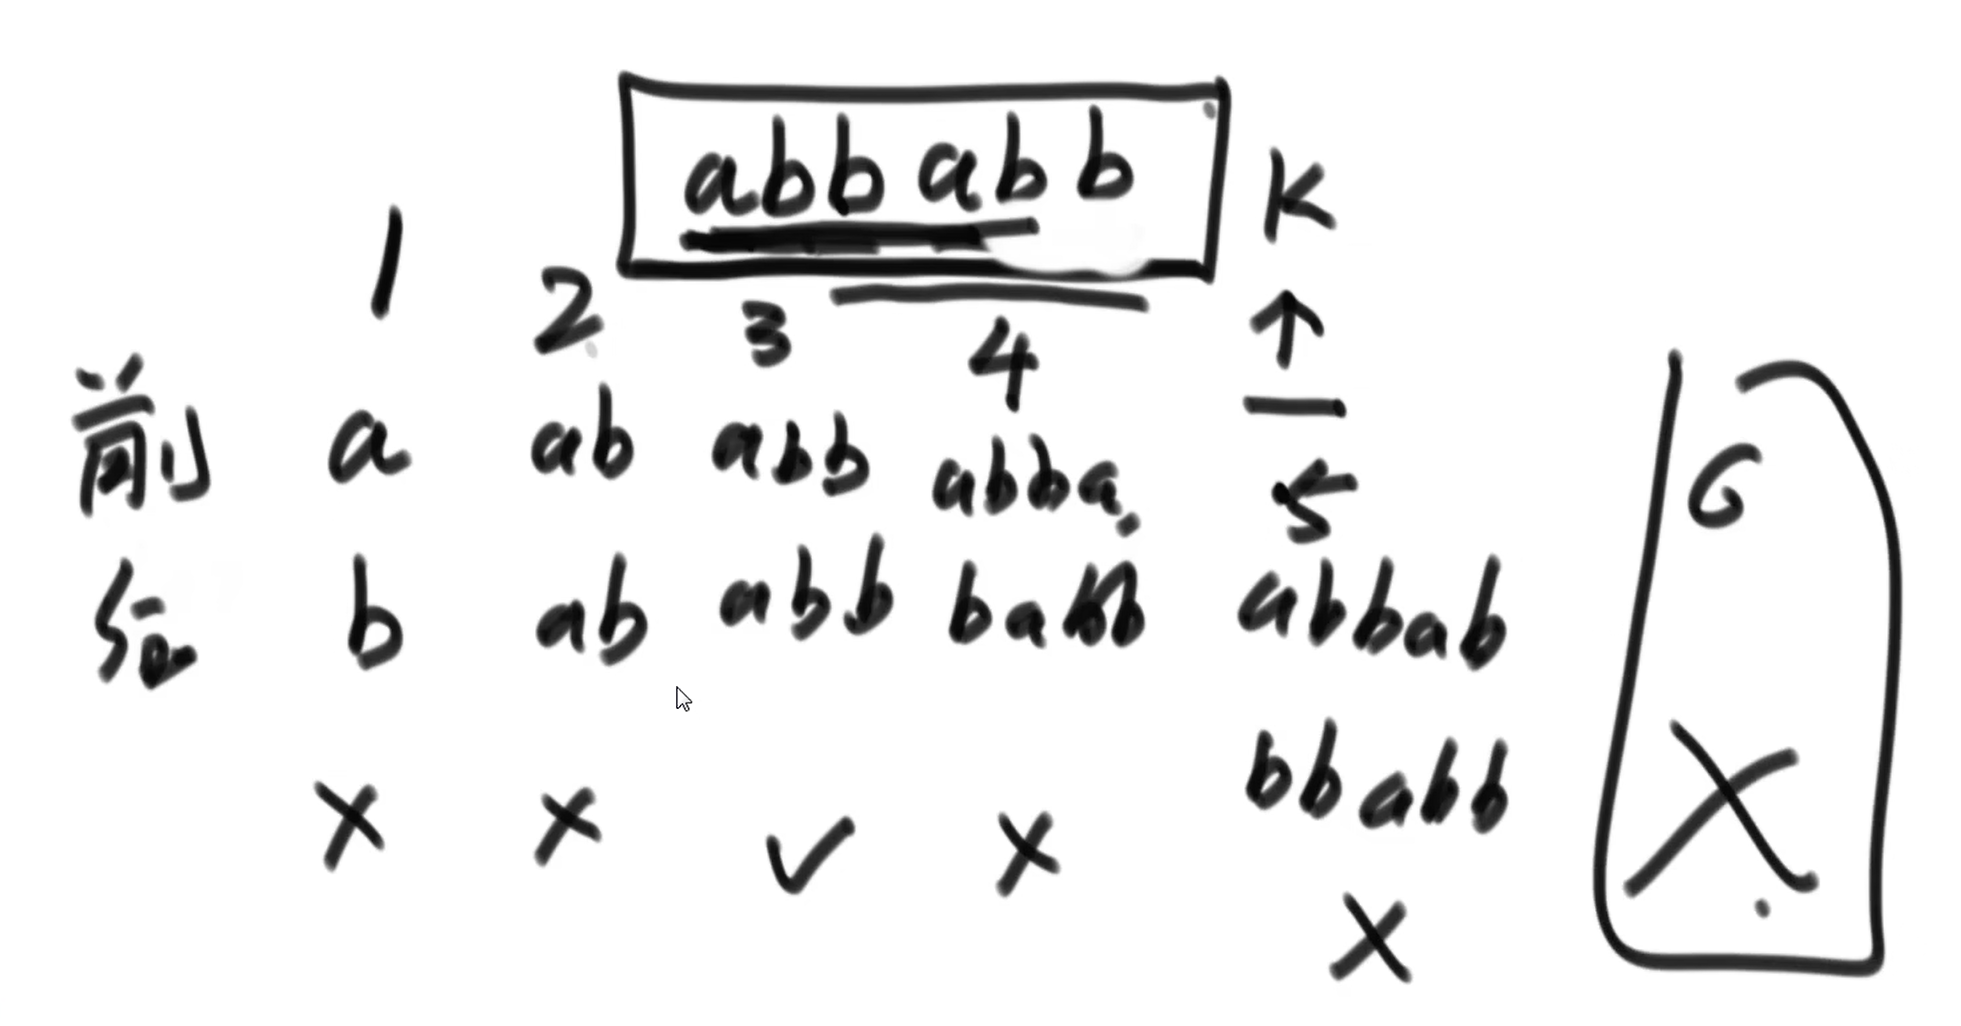 abb abb K
1 2 3 4 5 6
前 a ab abb abba abbab
后 b ab abb babb bbabb